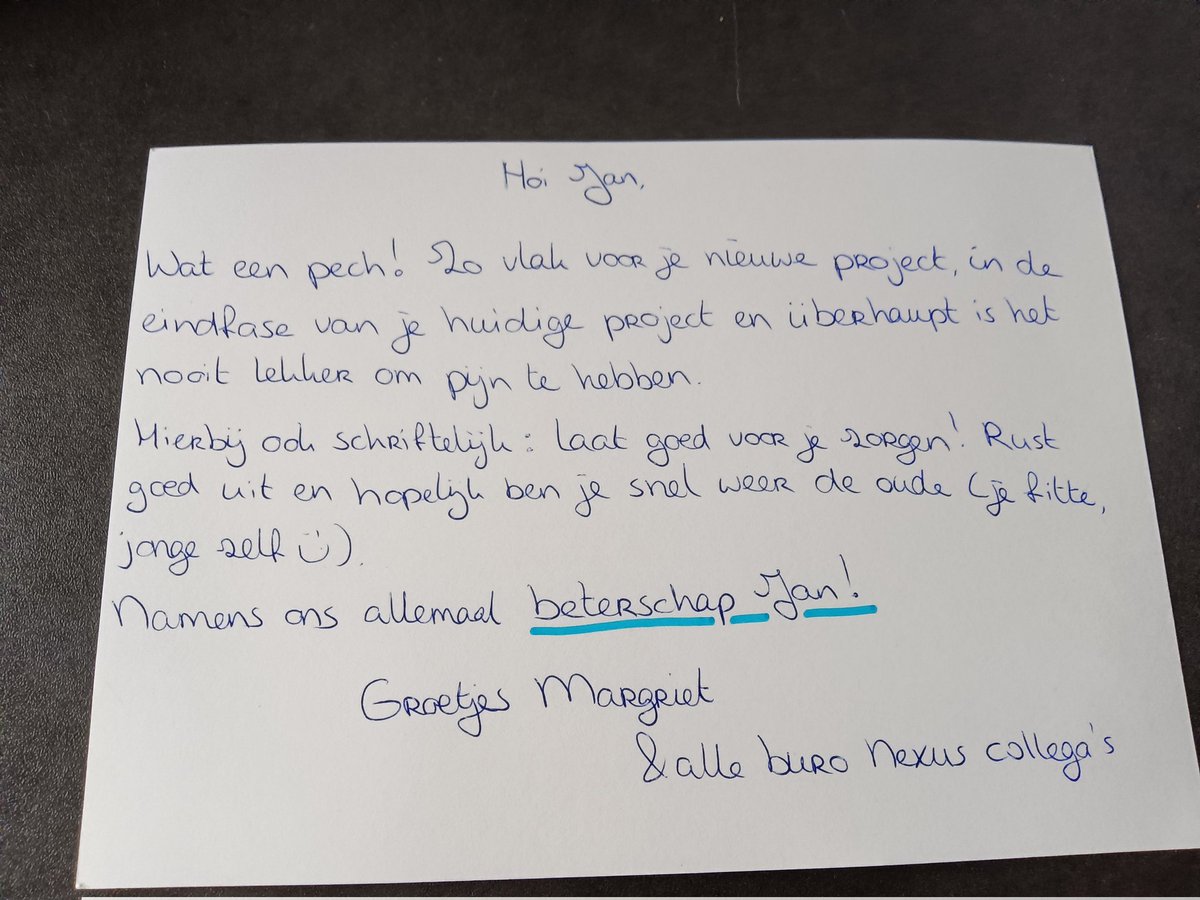 Hoi Jan,
Wat een pech! Zo vlak voor je nieuwe project, in de
eindfase van je huidige project en überhaupt is het
nooit lekker om pijn te hebben.
Hierbij ook schriftelijk: laat goed voor je zorgen! Rust
goed uit en hopelijk ben je snel weer de oude (je fitte,
jonge zelf ☺).
Namens ons allemaal beterschap Jan!
Groetjes Margriet
& alle buro Nexus collega's